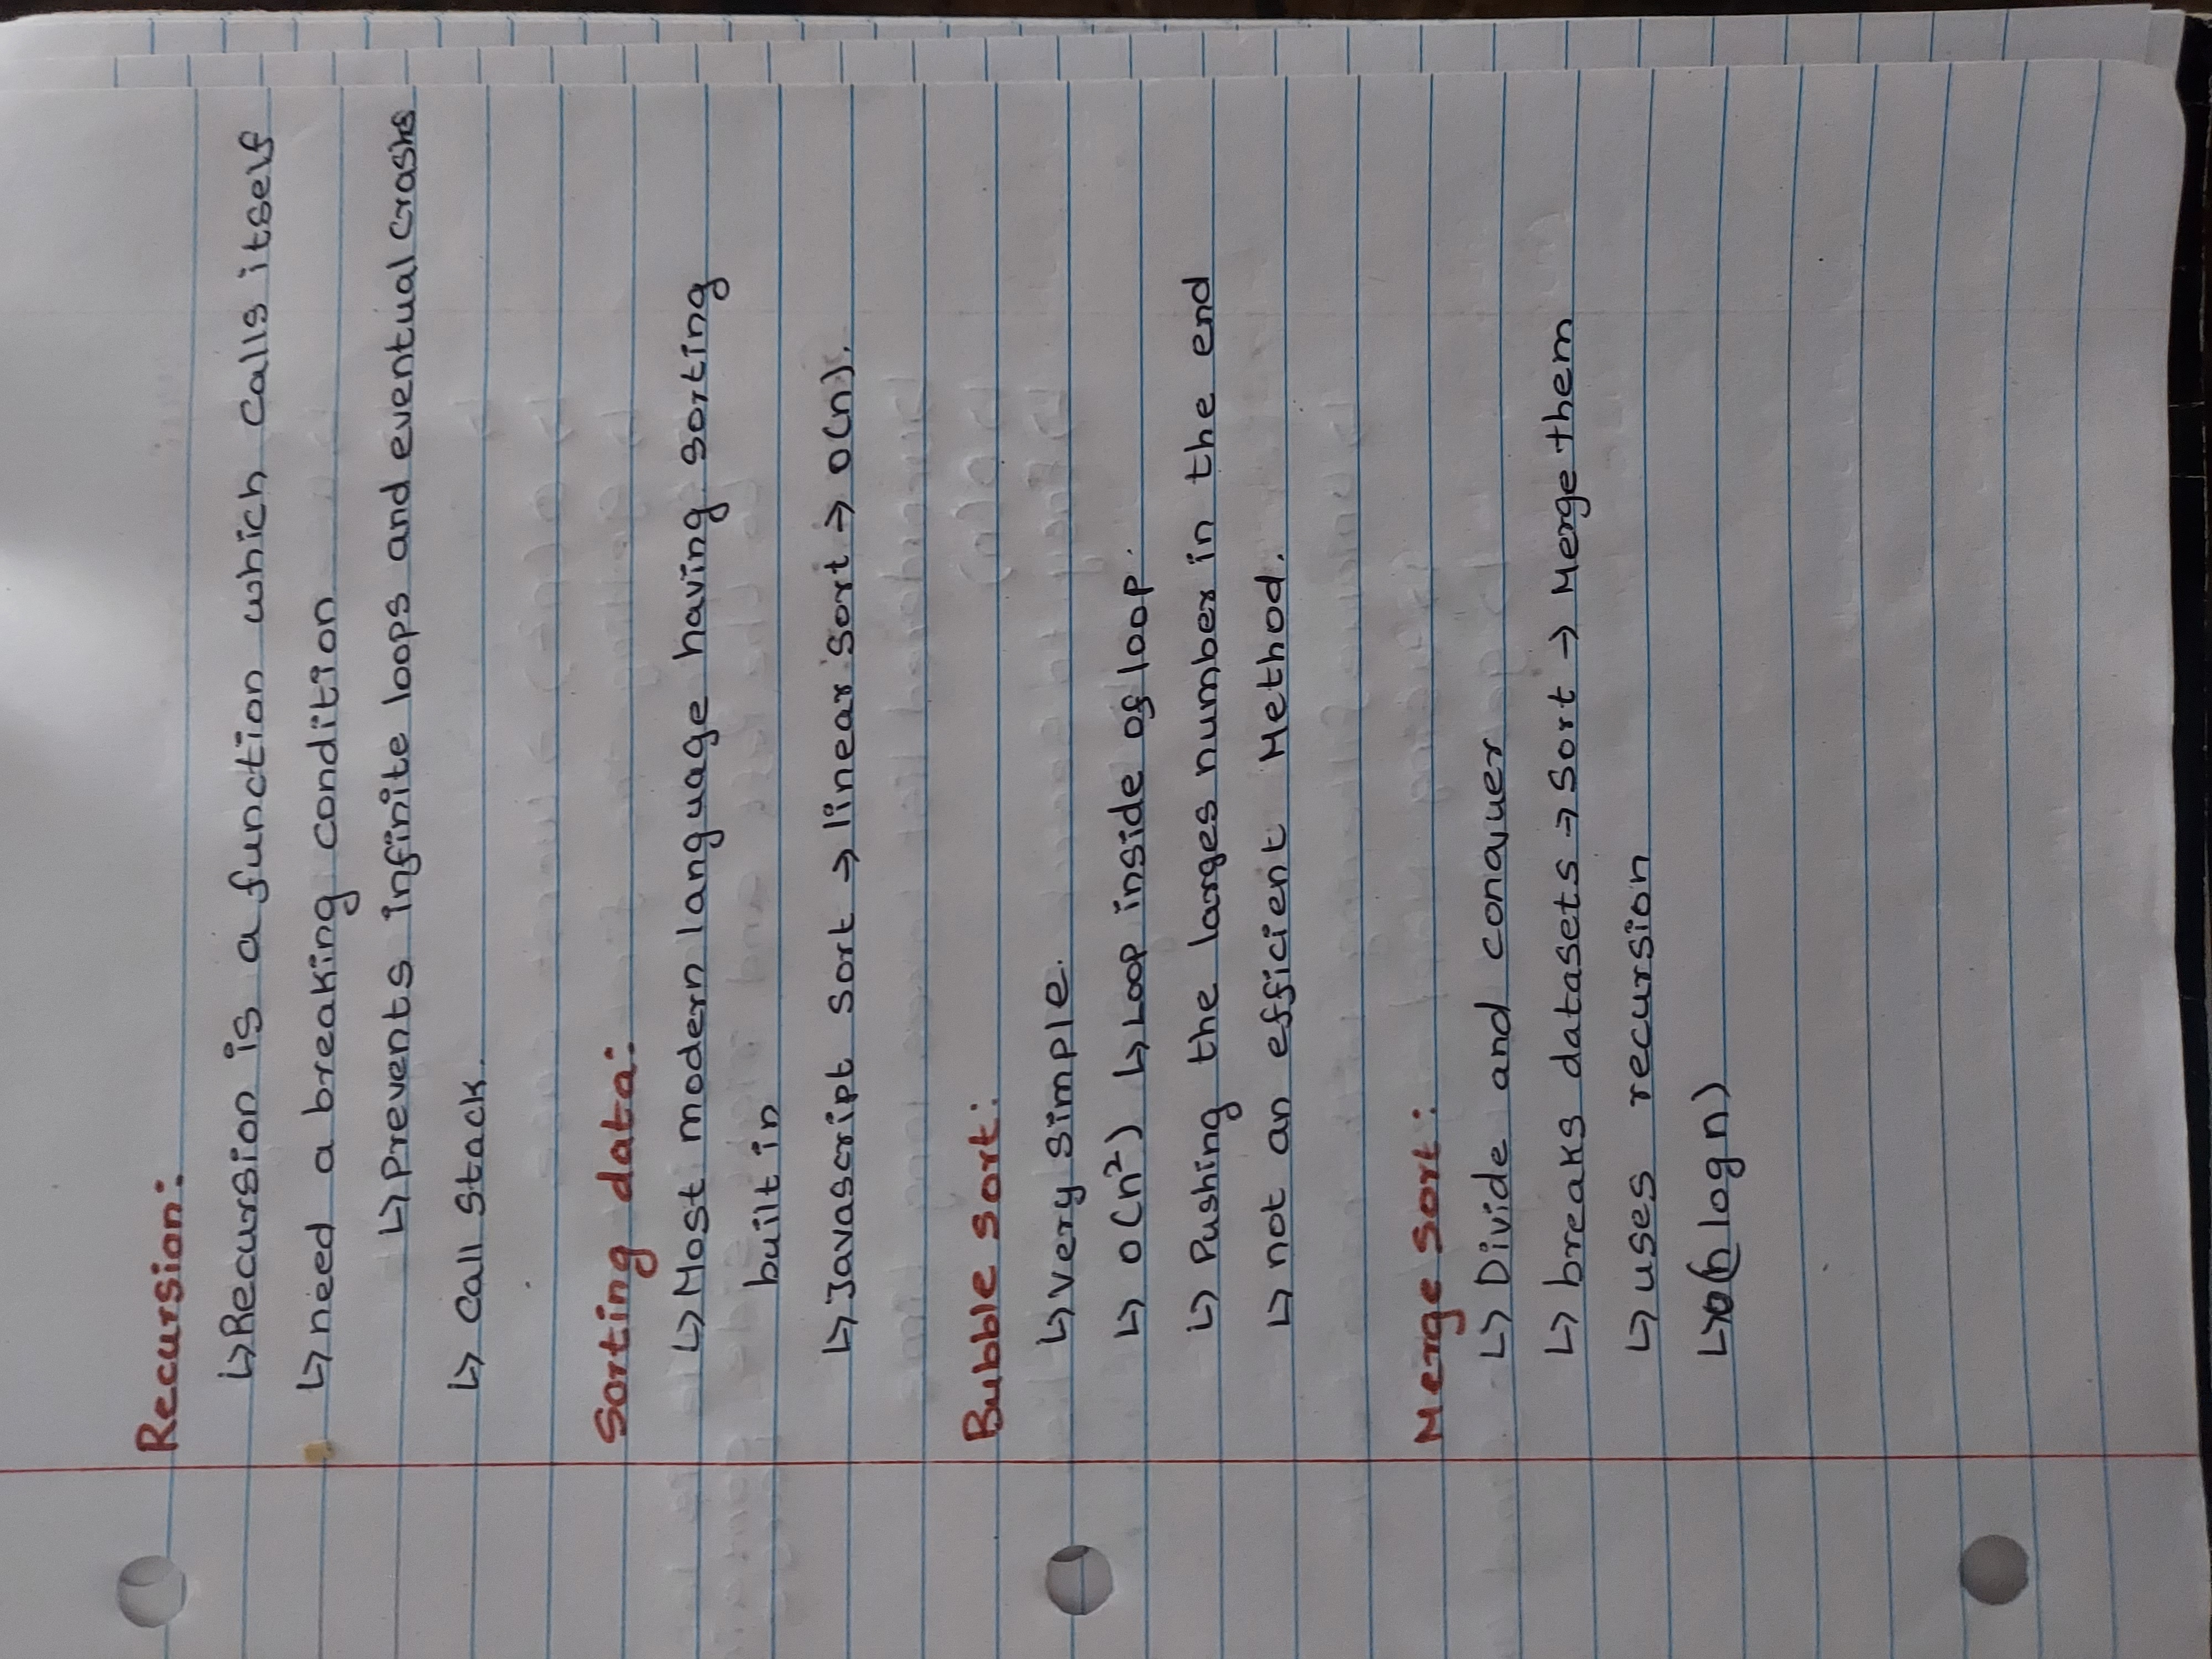 Recursion:
↳ Recursion is a function which calls itself
↳ need a breaking condition
↳ prevents infinite loops and eventual crashs
↳ call stack.
Sorting data:
↳ Most modern language having sorting
built in
↳ Javascript sort → linear sort → O(n).
Bubble sort:
↳ very simple.
↳ O(n²) ↳ Loop inside of loop.
↳ Pushing the larges number in the end
↳ not an efficient Method.
Merge Sort:
↳ Divide and conquer
↳ breaks datasets → Sort → Merge them
↳ uses recursion
↳ O(n log n)